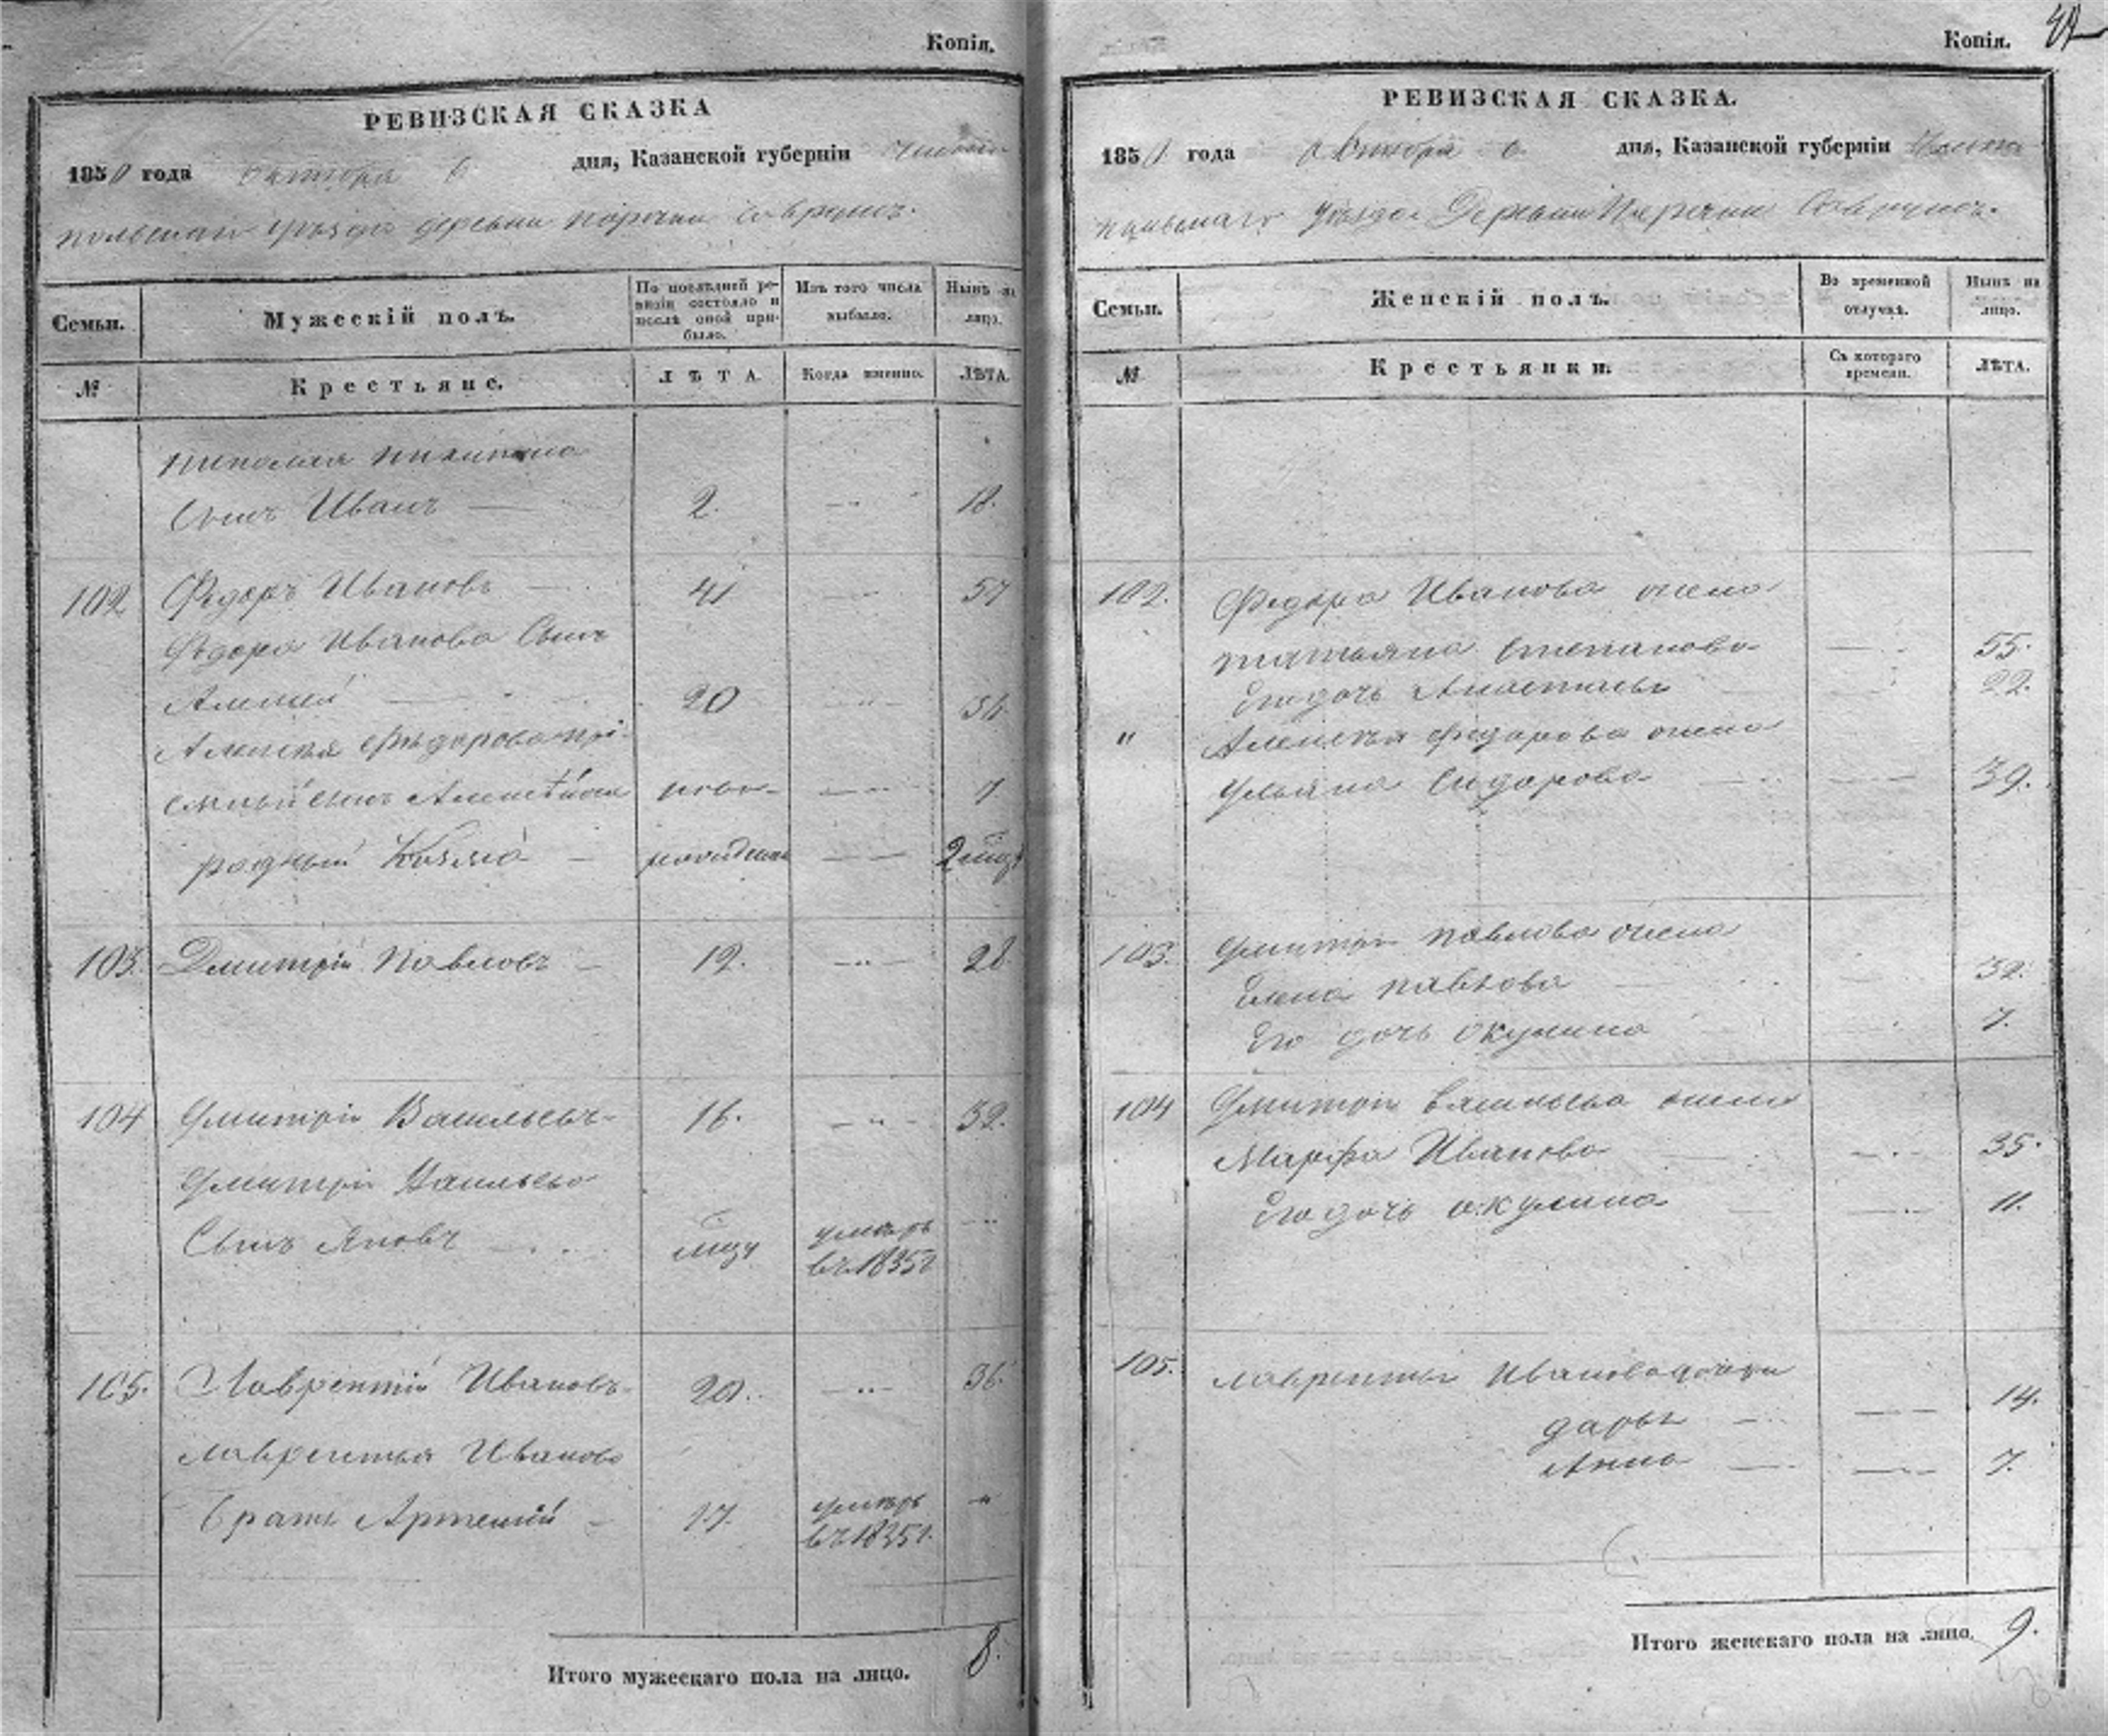 Копія.
РЕВИЗСКАЯ СКАЗКА
1850 года октября 6 дня, Казанской губерніи Чисто
польскаго уѣзда деревни Поречки Саврушъ.
Семьи.
Мужескій полъ.
По послѣдней ре-
визіи состояло и
послѣ оной при-
было.
Изъ того числа
выбыло.
Нынѣ на
лицо.
№
Крестьяне.
ЛѢТА.
Когда именно.
ЛѢТА.
Николая
Сынъ Иванъ — 2. — 18.
102 Федоръ Ивановъ — 41 — 57
Федора Иванова Сынъ
Алексей — 20 — 36
Алексея Федорова прі-
сынъ
ново-
родный Козма — —
103. Дмитрій Павловъ — 12. — 28
104 Дмитрій Васильевъ — 16. — 32.
Дмитрія Васильева
Сынъ Яковъ умеръ
въ 1835г
105. Лаврентій Ивановъ 20. — 36.
Лаврентья Иванова
братъ Артемій — 17. умеръ
въ 1835г.
Итого мужескаго пола на лицо. 8.
Копія.
РЕВИЗСКАЯ СКАЗКА.
1850 года октября 6 дня, Казанской губерніи Чисто
польскаго уѣзда Деревни Поречки Саврушъ.
Семьи.
Женскій полъ.
Во временной
отлучкѣ.
Нынѣ на
лицо.
№
Крестьянки.
Съ котораго
времени.
ЛѢТА.
102. Федора Иванова жена
Татьяна Степанова — 55.
Его дочь 22.
" Алексея Федорова жена
Ульяна Сидорова — 39.
103. Дмитрія Павлова жена
Елена Павлова 32.
Его дочь Окулина 7.
104 Дмитрія Васильева жена
Марфа Иванова — 35.
Его дочь Окулина — 11.
105. Лаврентья Иванова дочери
Дарья — 14.
Анна — 7.
Итого женскаго пола на лицо. 9.